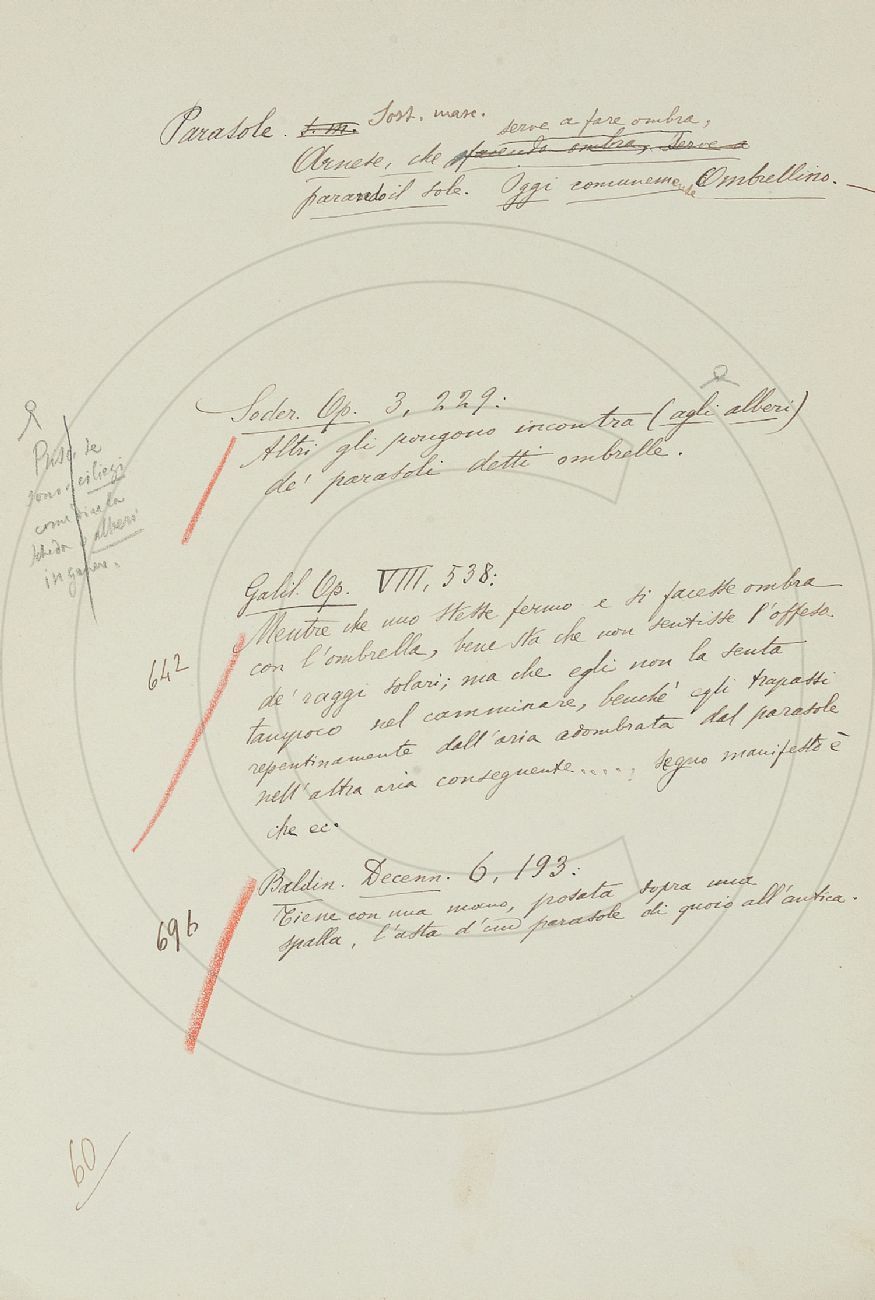 Parasole. s. m. Sost. masc.
serve a fare ombra,
Arnese, che facendo ombra, serve a
parando il sole. Oggi comunemente Ombrellino.
Soder. Op. 3, 229:
Altri gli pongono incontra (agli alberi)
de' parasoli detti ombrelle.
se
sono ciliegi
come la
scheda o alberi
in genere.
Galil. Op. VIII, 538:
Mentre che uno stesse fermo e si facesse ombra
con l'ombrella, bene sta che non sentisse l'offesa
de' raggi solari; ma che egli non la senta
tampoco nel camminare, benchè egli trapassi
repentinamente dall'aria adombrata dal parasole
nell'altra aria conseguente...., segno manifesto è
che ec.
642
Baldin. Decenn. 6, 193:
Tiene con una mano, posata sopra una
spalla, l'asta d'un parasole di quoio all'antica.
696
60